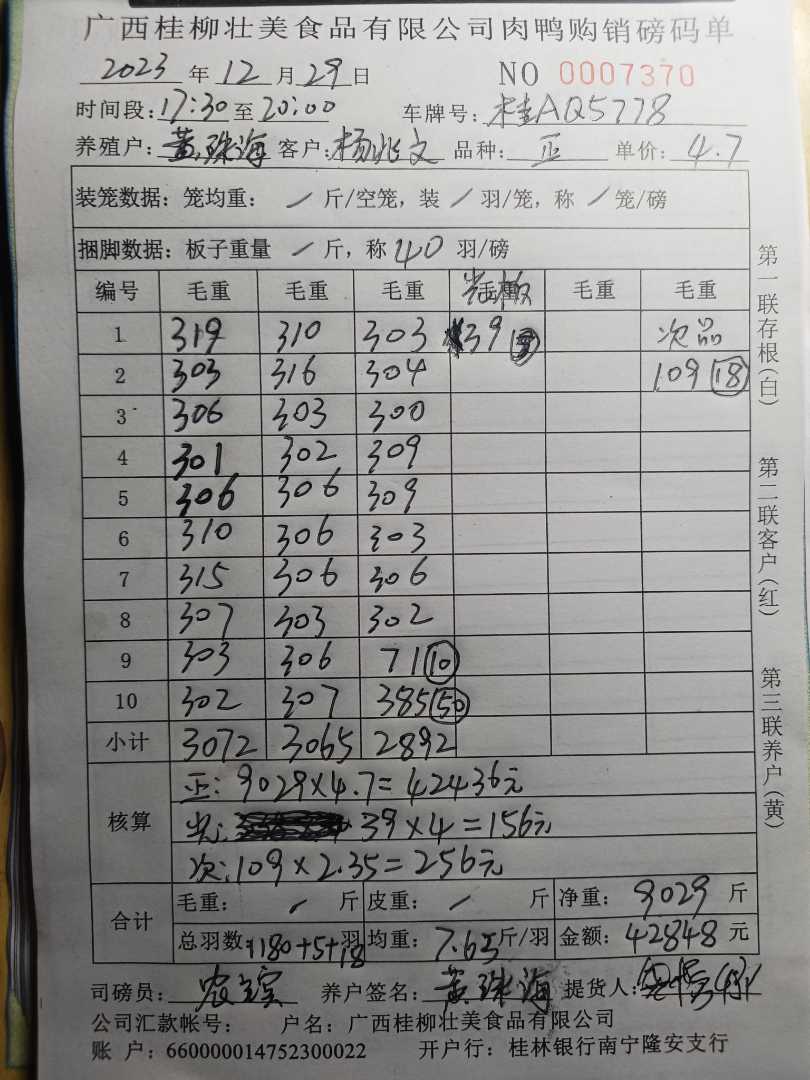 广西桂柳壮美食品有限公司肉鸭购销磅码单
2023 年 12 月 29 日 NO 0007370
时间段: 17:30 至 20:00 车牌号: 桂AQ5778
养殖户: 黄珠海 客户: 杨兆文 品种: 正 单价: 4.7
装笼数据: 笼均重: / 斤/空笼, 装 / 羽/笼, 称 / 笼/磅
捆脚数据: 板子重量 / 斤, 称 40 羽/磅
编号 毛重 毛重 毛重 毛重 毛重
1 319 310 303 39 次品
2 303 316 304 109 18
3 306 303 300
4 301 302 309
5 306 306 309
6 310 306 303
7 315 306 306
8 307 303 302
9 303 306 71 10
10 302 307 385 50
小计 3072 3065 2892
核算
正: 9029×4.7=42436元
光: 39×4=156元
次: 109×2.35=256元
合计
毛重: / 斤 皮重: / 斤 净重: 9029 斤
总羽数: 1180+5+18 羽 均重: 7.65 斤/羽 金额: 42848 元
司磅员: 养户签名: 黄珠海 提货人:
公司汇款帐号: 户名: 广西桂柳壮美食品有限公司
账 户: 660000014752300022 开户行: 桂林银行南宁隆安支行
第一联存根(白)
第二联客户(红)
第三联养户(黄)